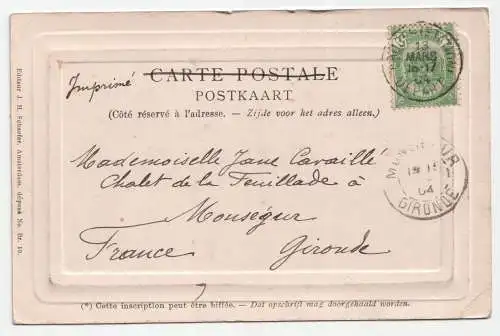 CARTE POSTALE
Imprimé
POSTKAART
(Côté réservé à l'adresse. — Zijde voor het adres alleen.)
13
MARS
16-17
MONSÉGUR
04
GIRONDE
Mademoiselle Jane Cavaillé
Chalet de la Feuillade à
Monségur
France Gironde
(*) Cette inscription peut être biffée. — Dat opschrift mag doorgehaald worden.
Editeur J. H. Schaefer, Amsterdam, déposé No. Br. 10.